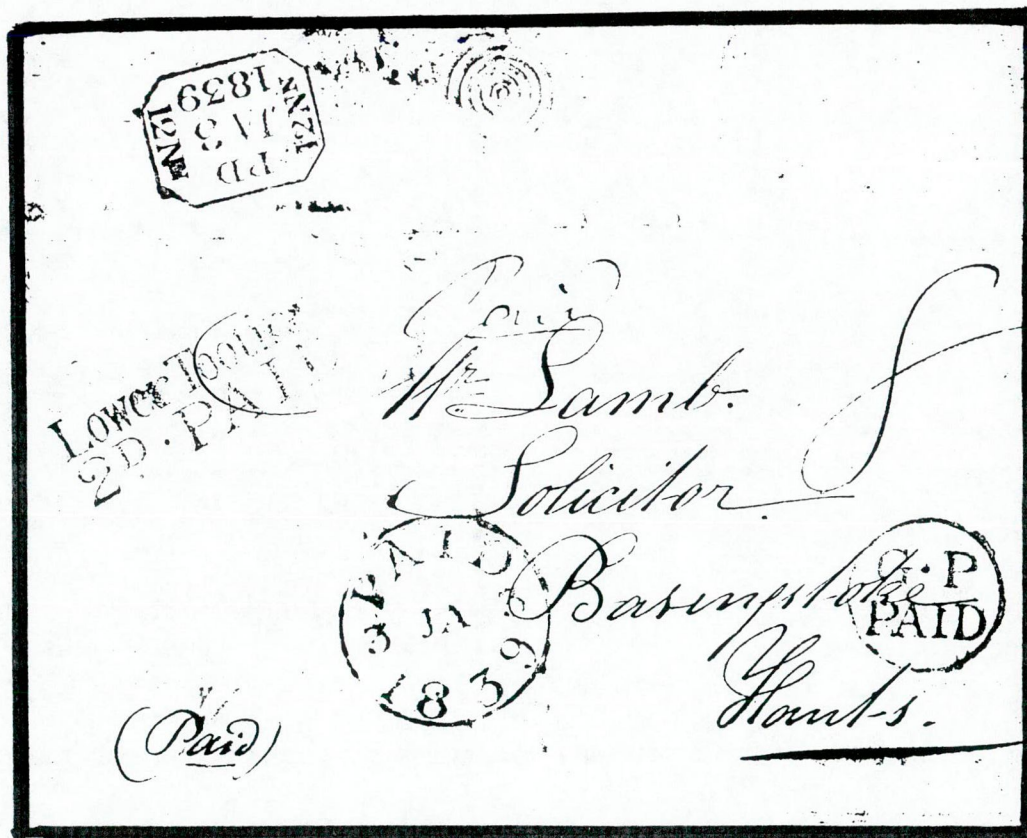 12 Nn 12
1839
JA 3
PD
Lower Tooting
2D. PAID
Paid
Mr Lamb.
8
Solicitor
Basingstoke
Hants.
PAID
3 JA 3
1839
G.P
PAID
(Paid)